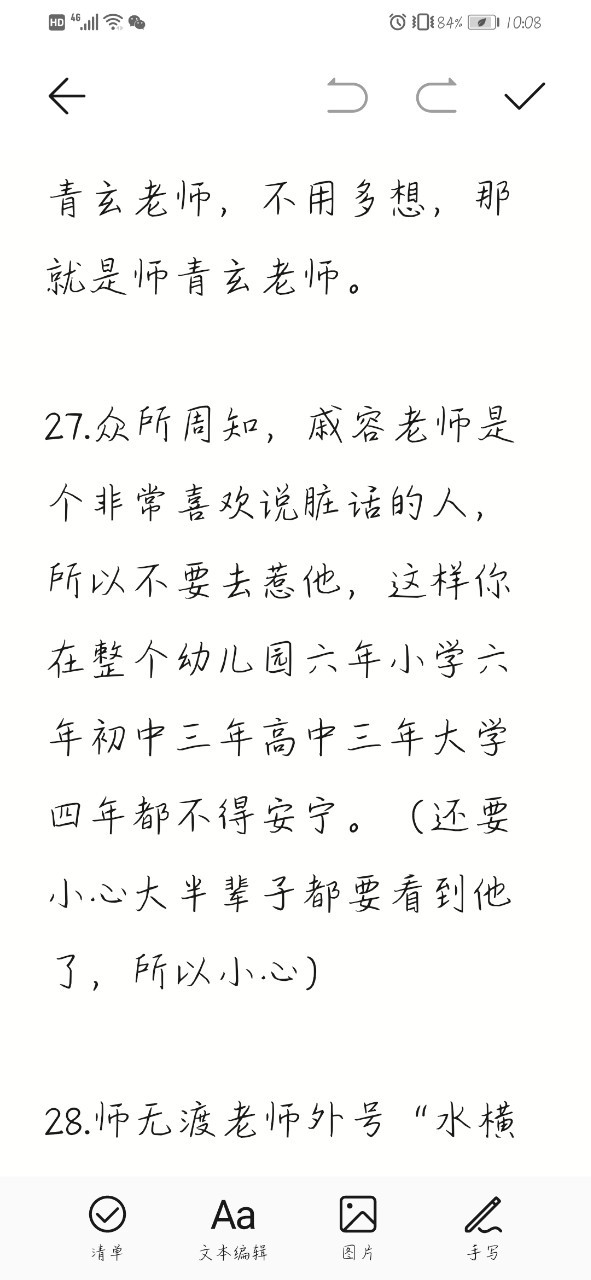 HD 4G 84% 10:08
青玄老师，不用多想，那
就是师青玄老师。
27.众所周知，戚容老师是
个非常喜欢说脏话的人，
所以不要去惹他，这样你
在整个幼儿园六年小学六
年初中三年高中三年大学
四年都不得安宁。（还要
小心大半辈子都要看到他
了，所以小心）
28.师无渡老师外号“水横
Aa
清单 文本编辑 图片 手写